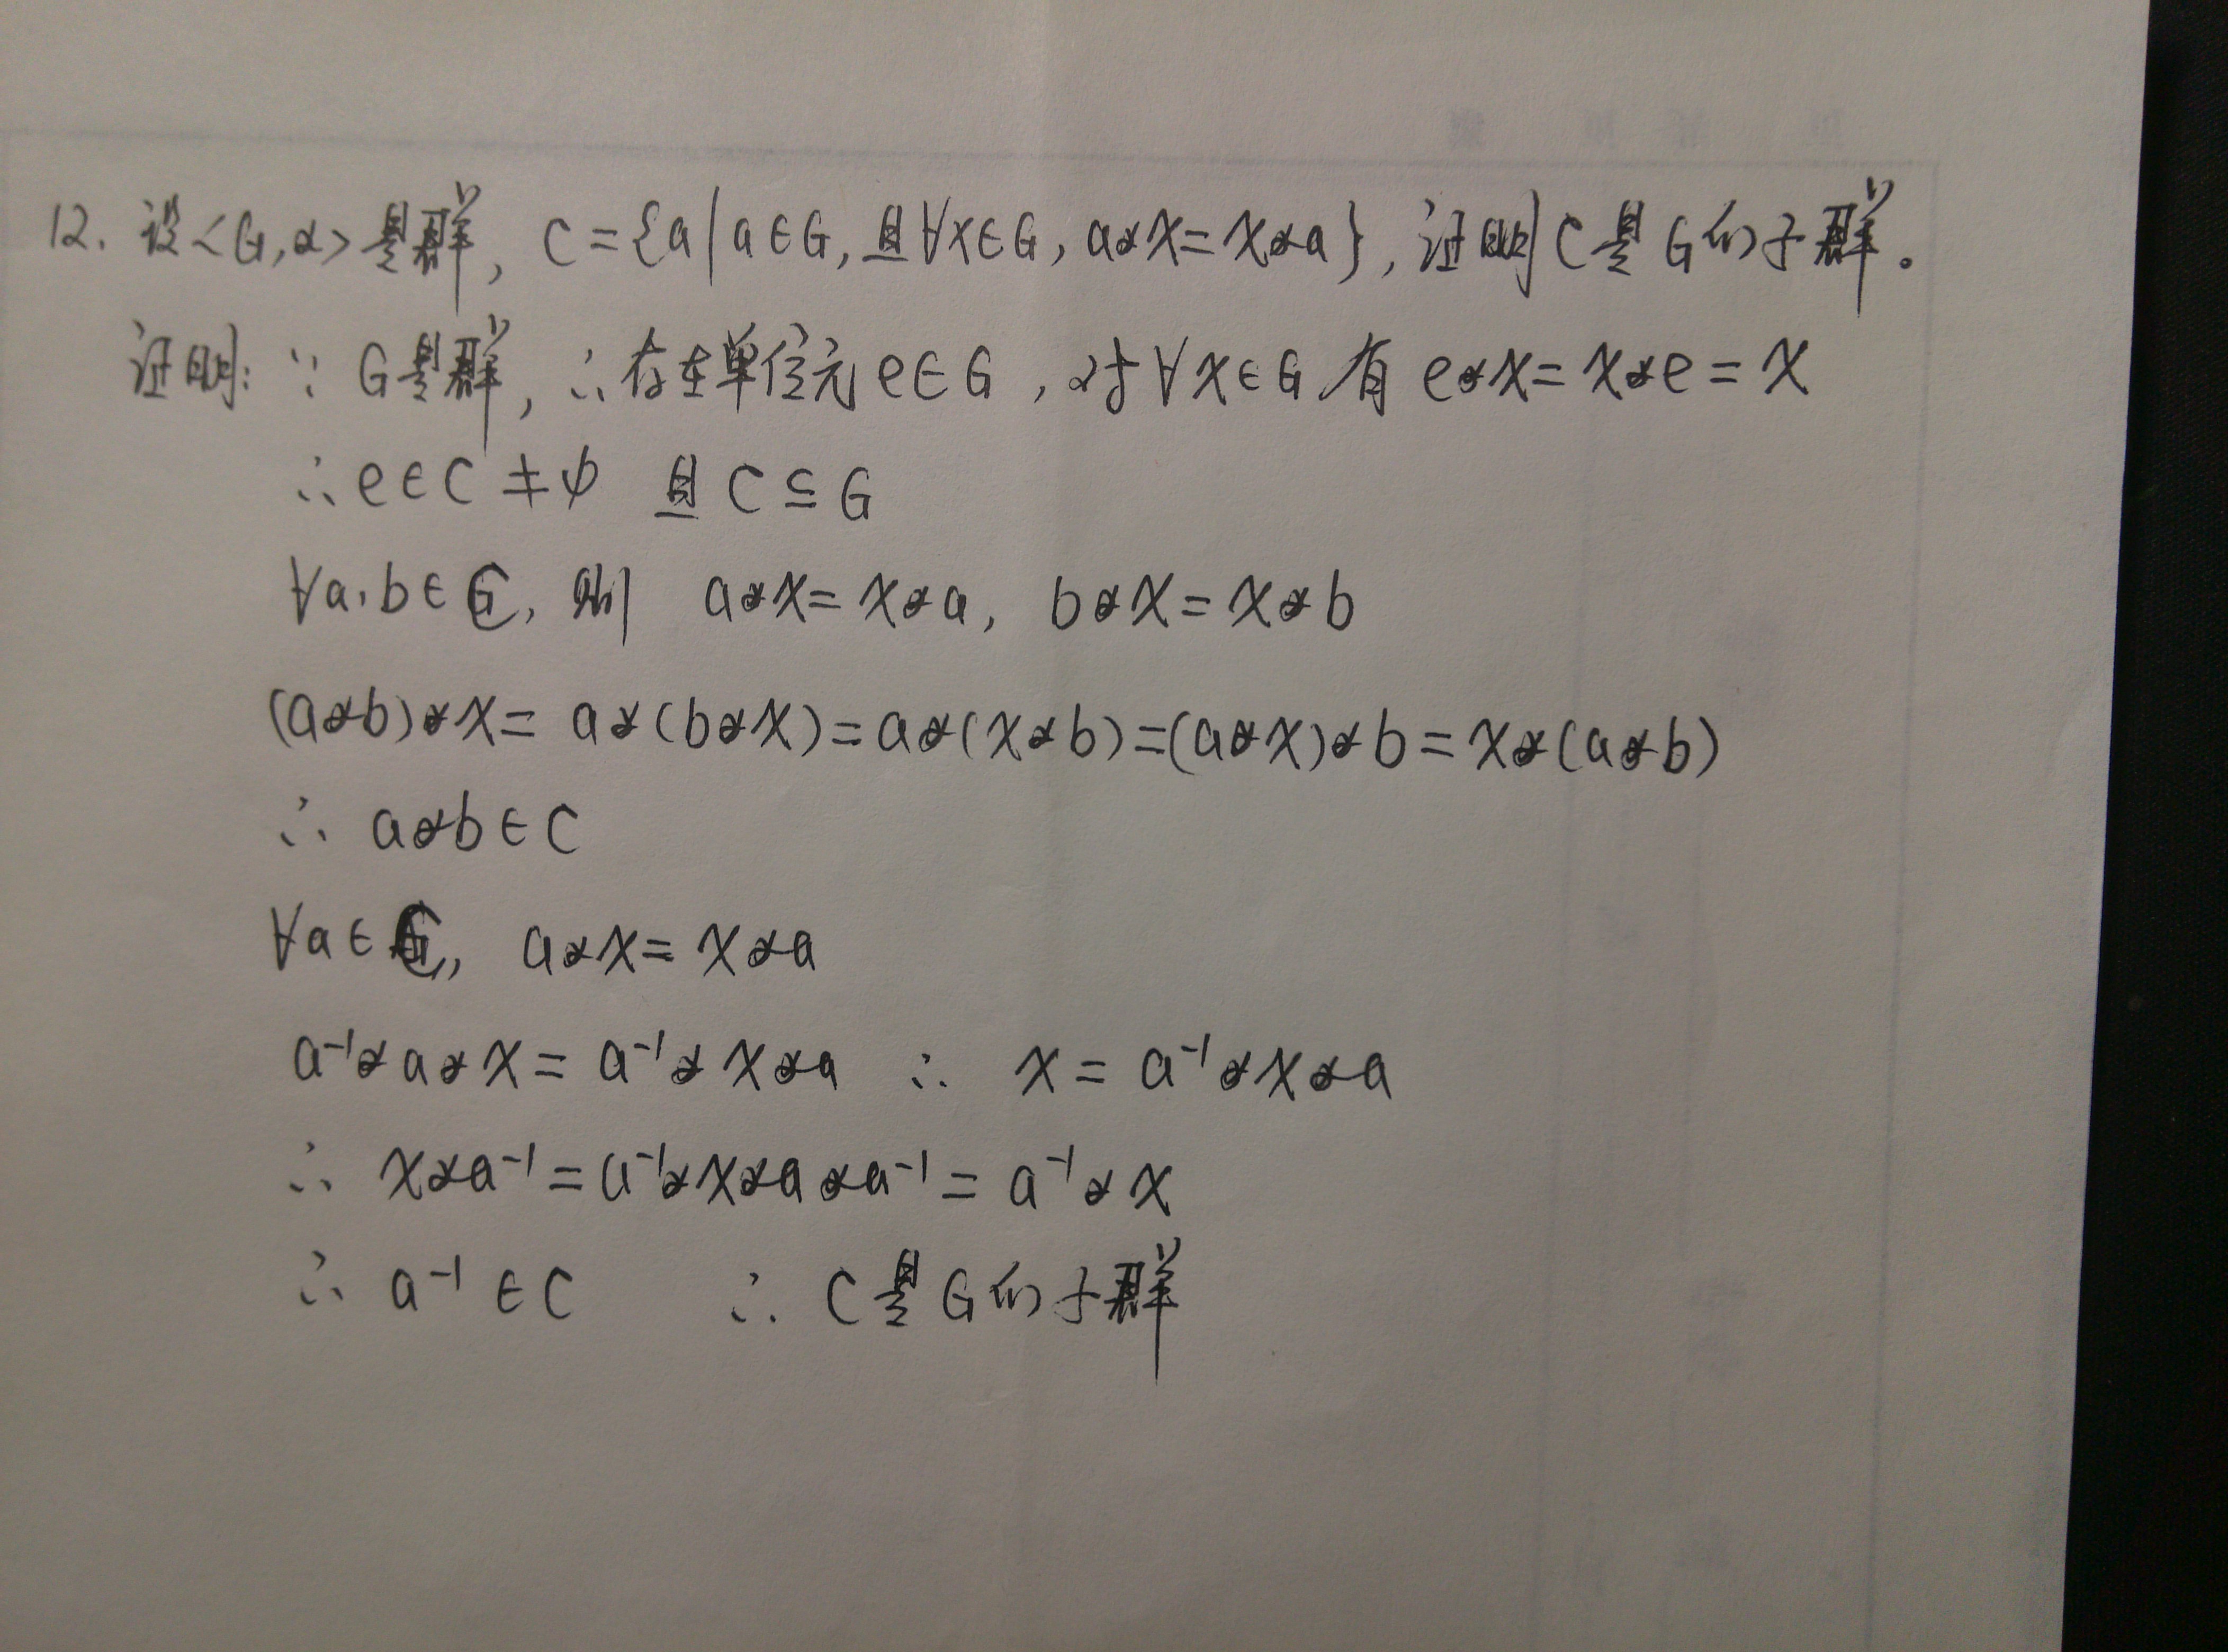 12. 设<G,*>是群, C={a|a∈G,且∀x∈G,a*x=x*a},证明C是G的子群。
证明: ∵ G是群, ∴存在单位元e∈G,对∀x∈G有 e*x=x*e=x
∴e∈C≠φ 且C⊆G
∀a,b∈C, 则 a*x=x*a, b*x=x*b
(a*b)*x=a*(b*x)=a*(x*b)=(a*x)*b=x*(a*b)
∴ a*b∈C
∀a∈C, a*x=x*a
a⁻¹*a*x=a⁻¹*x*a ∴ x=a⁻¹*x*a
∴ x*a⁻¹=a⁻¹*x*a*a⁻¹=a⁻¹*x
∴ a⁻¹∈C ∴ C是G的子群